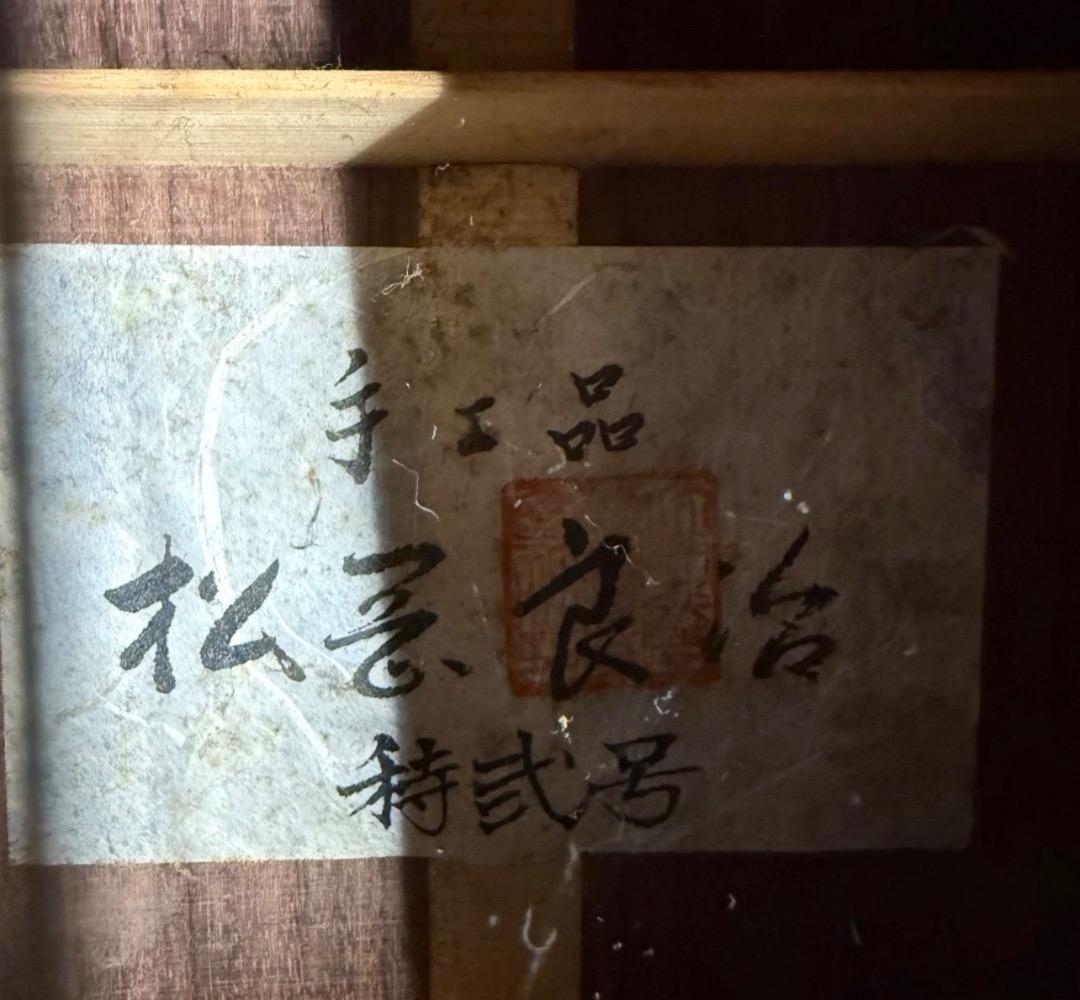 手工品
松岡良治
特弐号